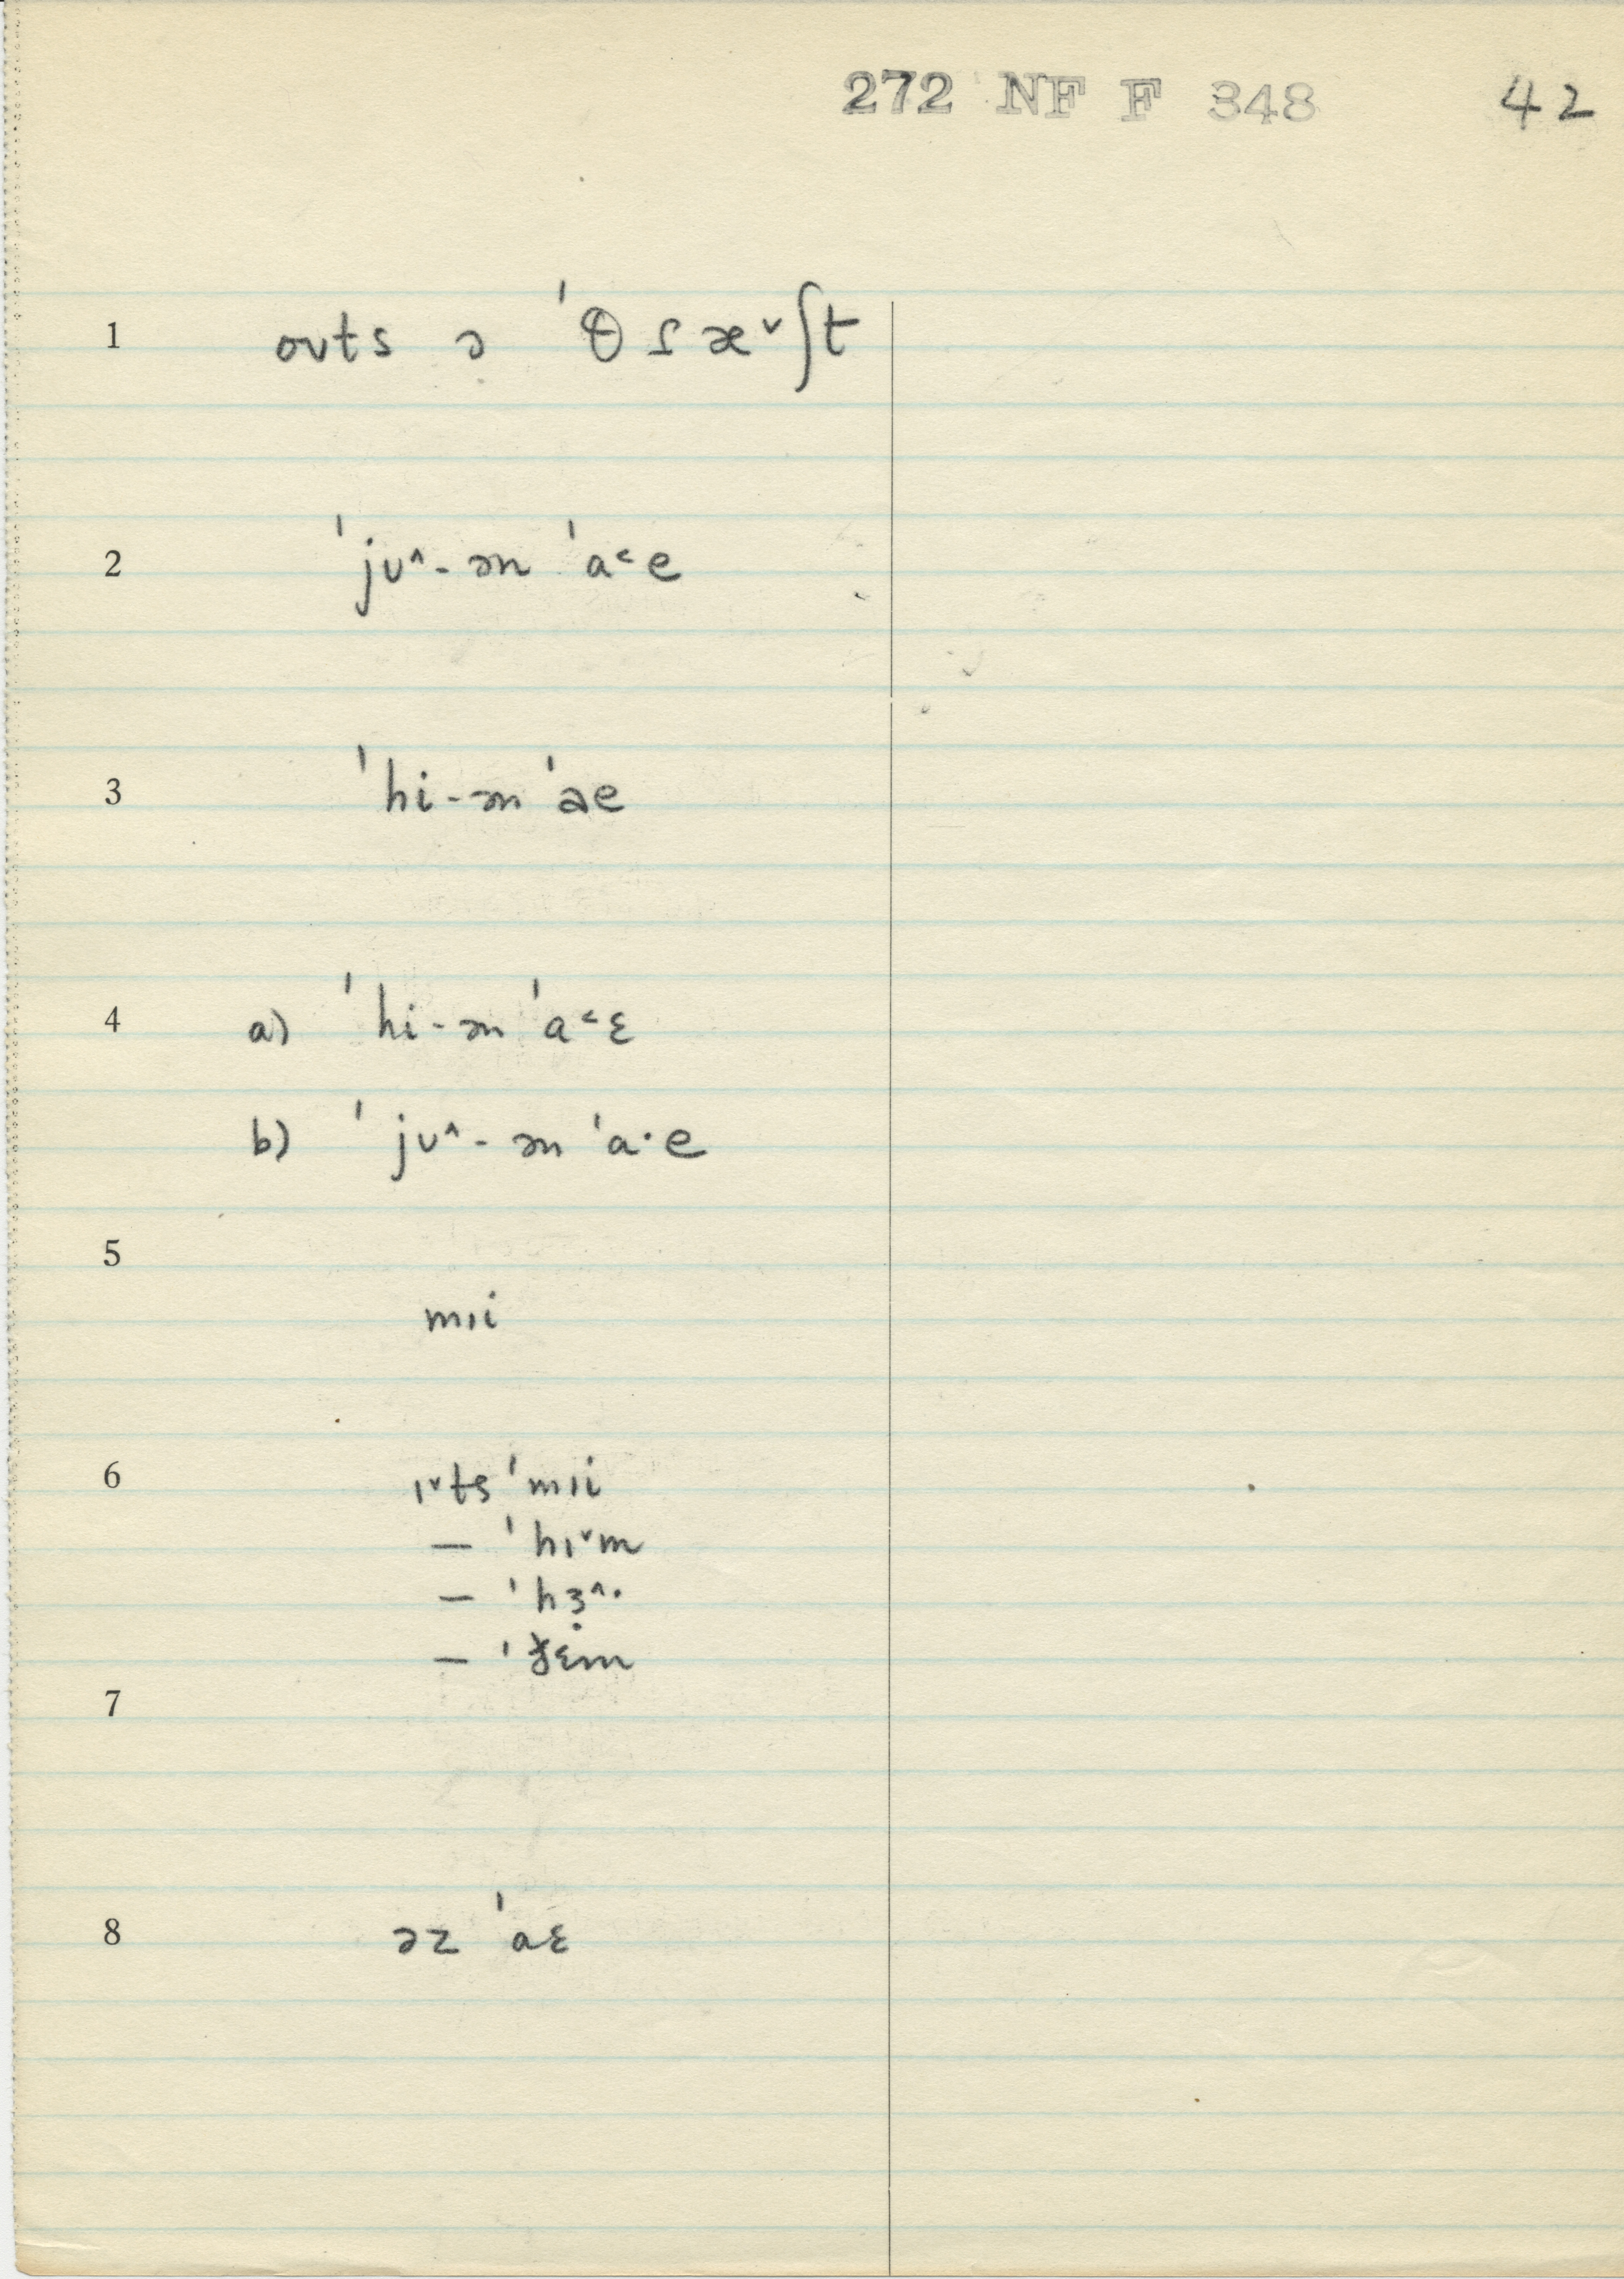 272 NF F 348 42
1 oʊts ə ˈθɾæ˅ʃt
2 ˈjʊ˄-ən ˈa˂e
3 ˈhi-ən ˈae
4 a) ˈhi-ən ˈa˂ɛ
b) ˈjʊ˄-ən ˈa·e
5
mɪi
6 ɪ˅ts ˈmɪi
— ˈhɪ˅m
— ˈhɜ˄·
— ˈðɛ̣m
7
8 əz ˈaɛ